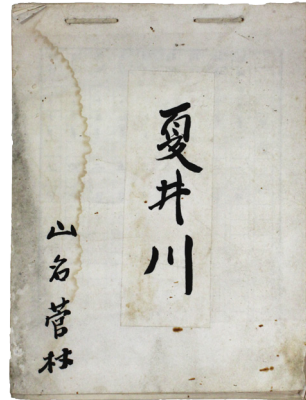 夏井川
山名菅林